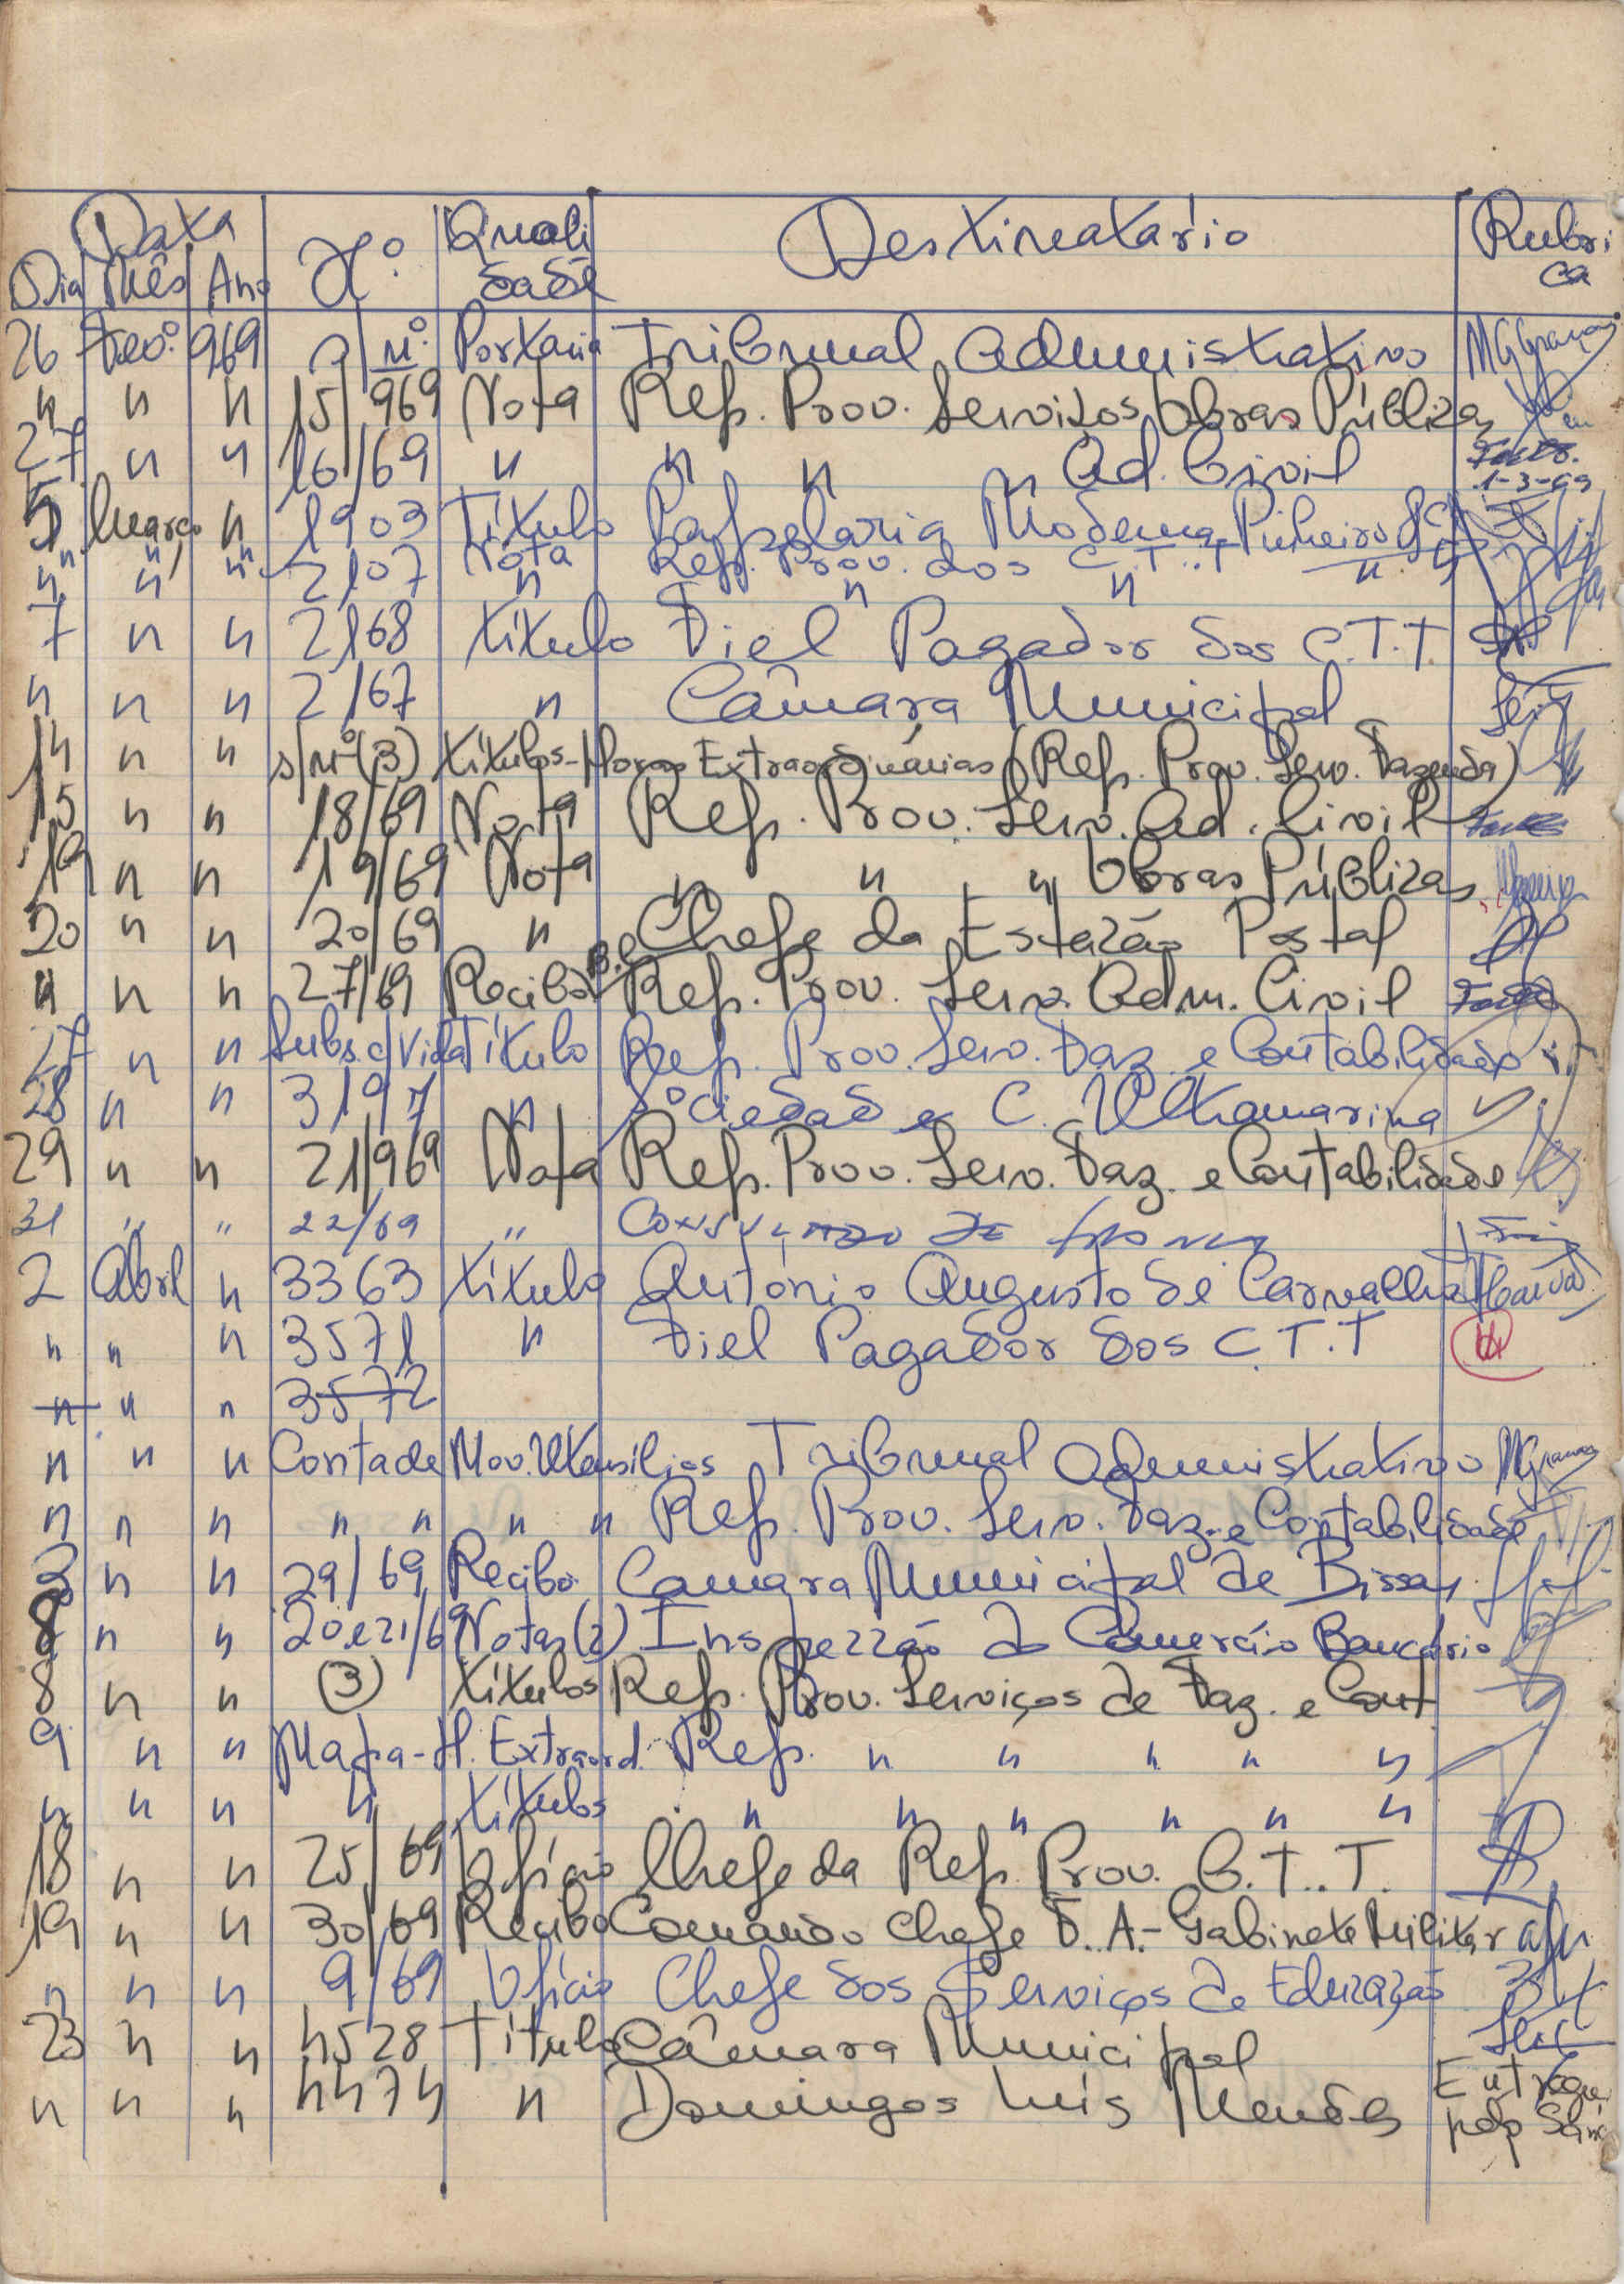 Data Nº Quali Destinatário Rubri
Dia Mês Ano dade ca
26 Fevº. 969 s/nº Portaria Tribunal Administrativo MGGranos
" " " 15/969 Nota Rep. Prov. Serviços Obras Públicas
27 " " 16/69 " " " " Ad. Civil
1-3-69
5 Março " 1903 Título Papelaria Moderna, Pinheiro
" " " Nota Rep. Prov. dos C.T.T
" " " 2107 " " " "
7 " " 2168 título Fiel Pagador dos C.T.T.
" " " 2167 " Câmara Municipal
14 " " s/nº(3) títulos-Horas Extraordinárias (Rep. Prov. Serv. Fazenda)
15 " " 18/69 Nota Rep. Prov. Serv. Ad. Civil
19 " " 19/69 Nota " " " Obras Públicas
20 " " 20/69 " Chefe da Estação Postal
" " " 27/69 Recibo Rep. Prov. Serv. Adm. Civil
27 " " Subs. c/Vida Título Rep. Prov. Serv. Faz. e Contabilidade
28 " " 3197 " Sociedade C. Ultramarina
29 " " 21/969 Nota Rep. Prov. Serv. Faz. e Contabilidade
31 " " 22/69 "
2 Abril " 3363 título António Augusto de Carvalho
" " " 3571 " Fiel Pagador dos C.T.T
" " " 3572
" " " Conta de Mov. Utensílios Tribunal Administrativo
" " " " " " " Rep. Prov. Serv. Faz. e Contabilidade
" " 29/69 Recibo Camara Municipal de Bissau
8 " " 20 e 21/69 Notas (2) Inspecção do Comércio Bancário
8 " " (3) títulos Rep. Prov. Serviços de Faz. e Cont
9 " " Mapa-H. Extraord. Rep. " " " " "
" " " " títulos " " " " " "
18 " " 25/69 Ofício Chefe da Rep. Prov. C.T.T.
19 " " 30/69 Recibo Comando Chefe F.A.-Gabinete Militar
" " " 9/69 Ofício Chefe dos Serviços de Educação
23 " " 4528 Título Câmara Municipal
" " " 4474 " Domingos Luís Mendes Entregue
pelo